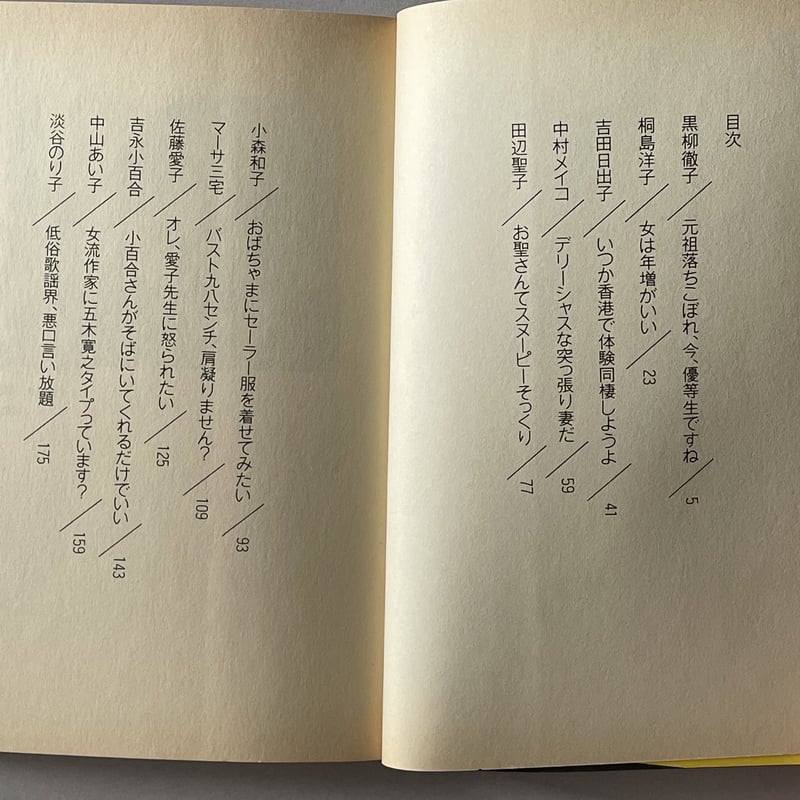 目次
黒柳徹子／元祖落ちこぼれ、今、優等生ですね／5
桐島洋子／女は年増がいい／23
吉田日出子／いつか香港で体験同棲しようよ／41
中村メイコ／デリーシャスな突っ張り妻だ／59
田辺聖子／お聖さんてスヌーピーそっくり／77
小森和子／おばちゃまにセーラー服を着せてみたい／93
マーサ三宅／バスト九八センチ、肩凝りません？／109
佐藤愛子／オレ、愛子先生に怒られたい／125
吉永小百合／小百合さんがそばにいてくれるだけでいい／143
中山あい子／女流作家に五木寛之タイプっています？／159
淡谷のり子／低俗歌謡界、悪口言い放題／175